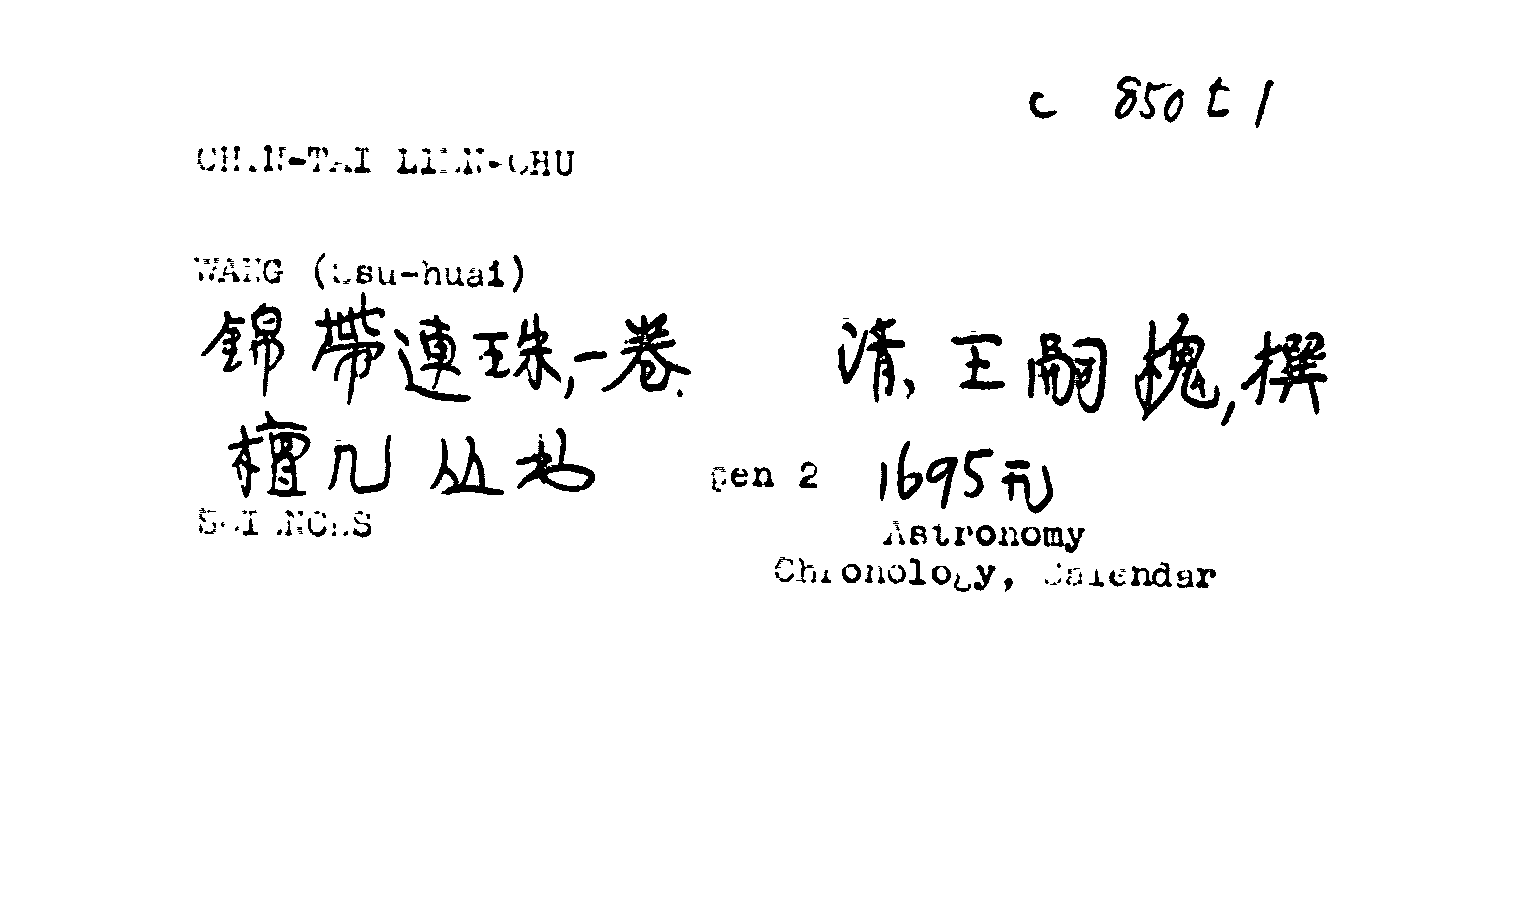 c 850 t 1
CHIN-TAI LIEN-CHU
WANG (Ssu-huai)
錦帶連珠,一卷. 清, 王嗣槐,撰
檀几丛书 gen 2 1695元
SCIENCES Astronomy
Chronology, Calendar